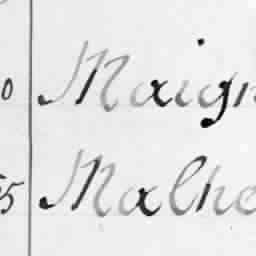 0 Maign
5 Malhe